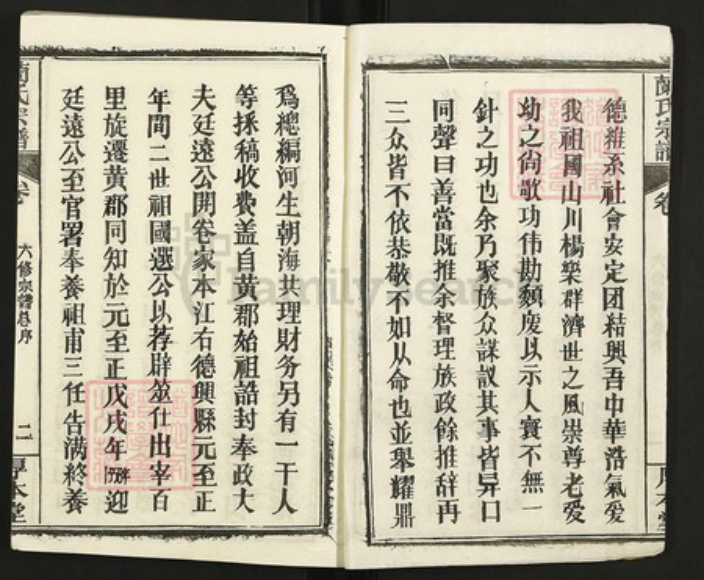 德維系社會安定团結興吾中華浩氣爱
我祖國山川楊樂群濟世之風崇尊老爱
幼之尚歌功伟勘頹废以示人實不無一
針之功也余乃聚族众謀議其事皆异口
同聲曰善當既推余督理族政餘推辞再
三众皆不依恭敬不如从命也並舉耀鼎
爲總編河生朝海共理財务另有一干人
等採稿收費盖自黄郡始祖誥封奉政大
夫廷遠公開卷家本江右德興縣元至正
年間二世祖國選公以荐辟筮仕出宰百
里旋遷黄郡同知於元至正戊戌年迎
廷遠公至官署奉養祖甫三任告满終養
蘭氏宗譜
卷
六修宗譜总序
二
厚本堂
FamilySearch